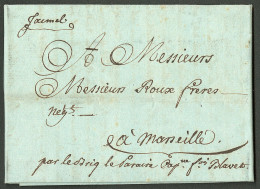 Jacmel
A Messieurs
Messieurs Roux freres
neg.ts
à Marseille.
par le Briq le Saraire Cap.ne fois Blavet